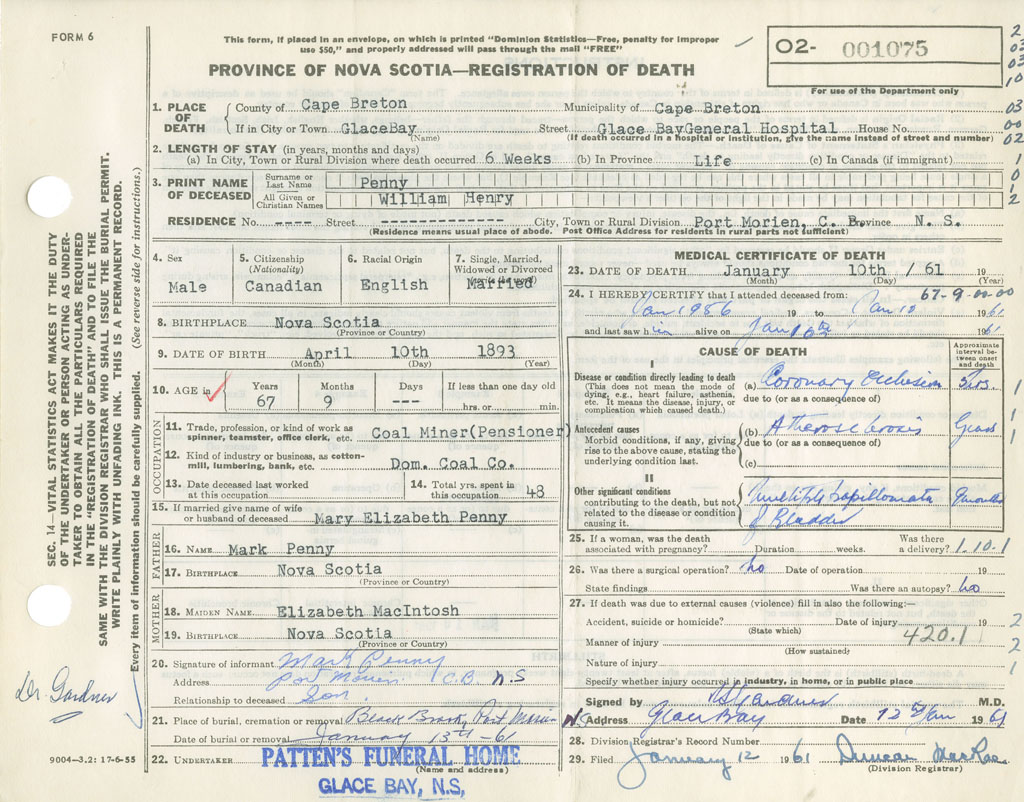 FORM 6
This form, if placed in an envelope, on which is printed "Dominion Statistics—Free, penalty for improper
use $50," and properly addressed will pass through the mail "FREE"
PROVINCE OF NOVA SCOTIA—REGISTRATION OF DEATH
02- 001075
For use of the Department only
SEC. 14—VITAL STATISTICS ACT MAKES IT THE DUTY
OF THE UNDERTAKER OR PERSON ACTING AS UNDER-
TAKER TO OBTAIN ALL THE PARTICULARS REQUIRED
IN THE "REGISTRATION OF DEATH" AND TO FILE THE
SAME WITH THE DIVISION REGISTRAR WHO SHALL ISSUE THE BURIAL PERMIT.
WRITE PLAINLY WITH UNFADING INK. THIS IS A PERMANENT RECORD.
Every item of information should be carefully supplied. (See reverse side for instructions.)
1. PLACE OF DEATH
County of Cape Breton Municipality of Cape Breton
If in City or Town GlaceBay Street Glace BayGeneral Hospital House No.
(Name) (If death occurred in a hospital or institution, give the name instead of street and number)
2. LENGTH OF STAY (in years, months and days)
(a) In City, Town or Rural Division where death occurred 6 Weeks (b) In Province Life (c) In Canada (if immigrant)
3. PRINT NAME OF DECEASED
Surname or Last Name Penny
All Given or Christian Names William Henry
RESIDENCE No. ---- Street ------------- City, Town or Rural Division Port Morien, C. B. Province N. S.
(Residence means usual place of abode. Post Office Address for residents in rural parts not sufficient)
4. Sex
Male
5. Citizenship
(Nationality)
Canadian
6. Racial Origin
English
7. Single, Married,
Widowed or Divorced
Married
8. BIRTHPLACE Nova Scotia
(Province or Country)
9. DATE OF BIRTH April 10th 1893
(Month) (Day) (Year)
10. AGE in
Years Months Days If less than one day old
67 9 --- hrs. or min.
OCCUPATION
11. Trade, profession, or kind of work as
spinner, teamster, office clerk, etc. Coal Miner(Pensioner)
12. Kind of industry or business, as cotton-
mill, lumbering, bank, etc. Dom. Coal Co.
13. Date deceased last worked
at this occupation
14. Total yrs. spent in
this occupation 48
15. If married give name of wife
or husband of deceased Mary Elizabeth Penny
FATHER
16. NAME Mark Penny
17. BIRTHPLACE Nova Scotia
(Province or Country)
MOTHER
18. MAIDEN NAME Elizabeth MacIntosh
19. BIRTHPLACE Nova Scotia
(Province or Country)
20. Signature of informant Mark Penny
Address Port Morien C.B. N.S
Relationship to deceased Son
21. Place of burial, cremation or removal Black Brook, Port Morien
Date of burial or removal January 13th-61
22. UNDERTAKER PATTEN'S FUNERAL HOME
(Name and address)
GLACE BAY, N.S.
9004—3.2: 17-6-55
Dr. Gardner
MEDICAL CERTIFICATE OF DEATH
23. DATE OF DEATH January 10th /61 19
(Month) (Day) (Year)
24. I HEREBY CERTIFY that I attended deceased from: 67-9-00-00
Jan 1956 19 to Jan 10 1961
and last saw him alive on Jan 10th 1961
CAUSE OF DEATH
Approximate
interval be-
tween onset
and death
I
Disease or condition directly leading to death
(This does not mean the mode of
dying, e.g., heart failure, asthenia,
etc. It means the disease, injury, or
complication which caused death.)
(a) Coronary Occlusion 3 hrs.
due to (or as a consequence of)
Antecedent causes
Morbid conditions, if any, giving
rise to the above cause, stating the
underlying condition last.
(b) Atherosclerosis Years
due to (or as a consequence of)
(c)
II
Other significant conditions
contributing to the death, but not
related to the disease or condition
causing it.
multiple papillomata
of Bladder
25. If a woman, was the death
associated with pregnancy? Duration weeks. Was there
a delivery? 1.10.1
26. Was there a surgical operation? no Date of operation 19
State findings Was there an autopsy? no
27. If death was due to external causes (violence) fill in also the following:—
Accident, suicide or homicide? Date of injury 19
(State which)
Manner of injury 420.1
(How sustained)
Nature of injury
Specify whether injury occurred in industry, in home, or in public place
Signed by Gardner M.D.
Address Glace Bay Date 12 Jan 1961
28. Division Registrar's Record Number
29. Filed January 12 1961 Duncan MacRae
(Division Registrar)